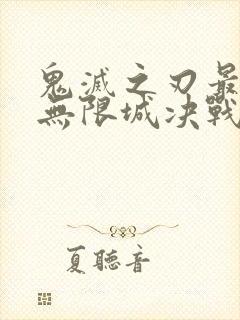 鬼滅之刃最
無限城決戰
夏聽音